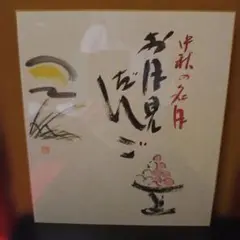 中秋の名月
お月見
だんご